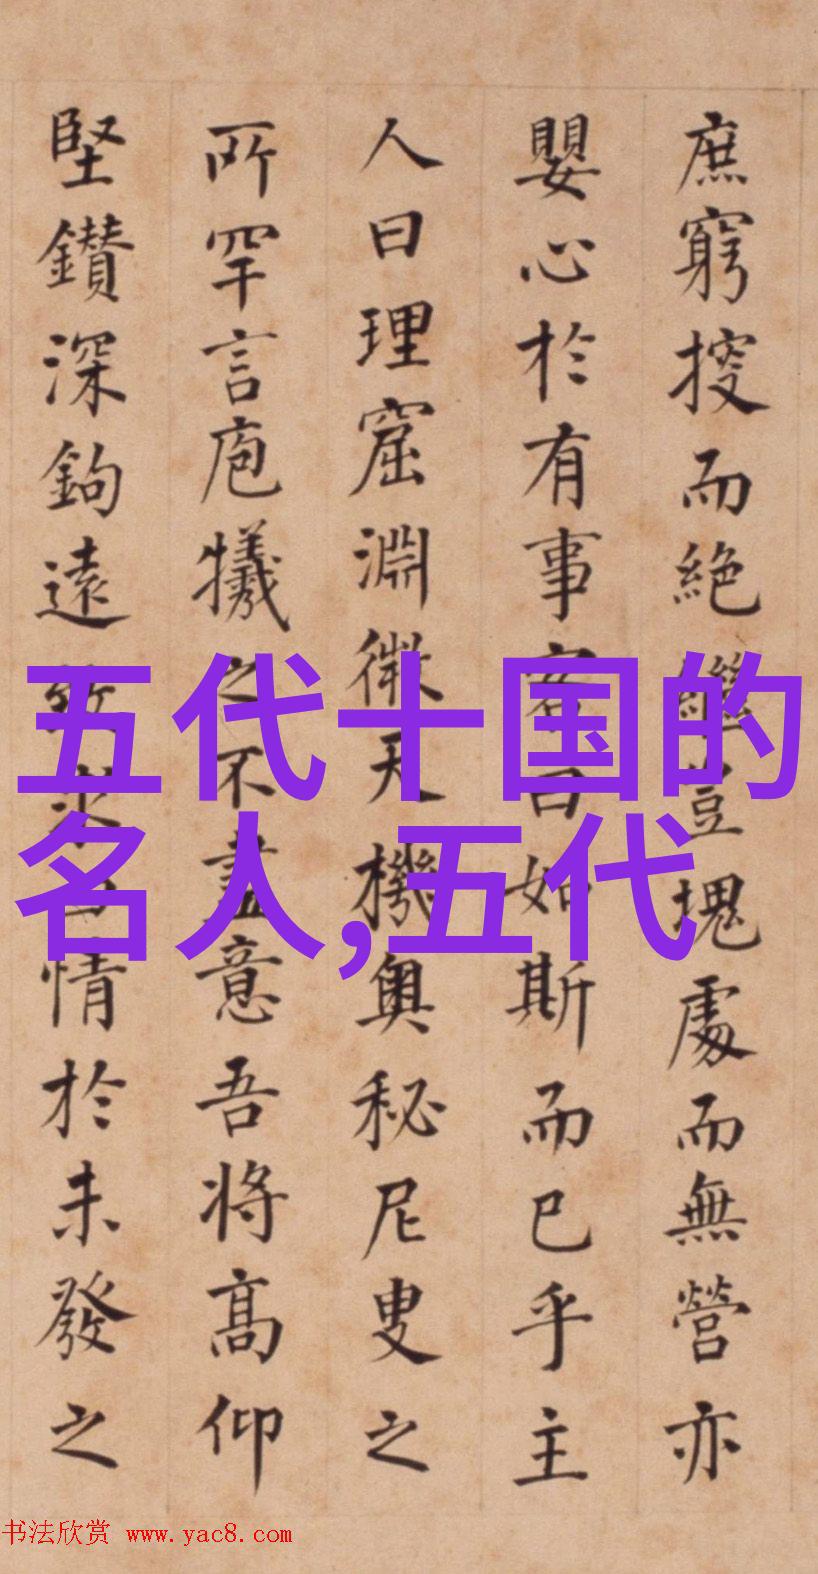 庶窮挍而絕繼豈塊處而無營亦
嬰心於有事客曰如斯而已乎主
人曰理窟淵微天機奧秘尼叟之
所罕言庖犧之不盡意吾將高仰
堅鑽深鉤遠情於未發之
五代十国的
名人,五代
书法欣赏 www.yac8.com